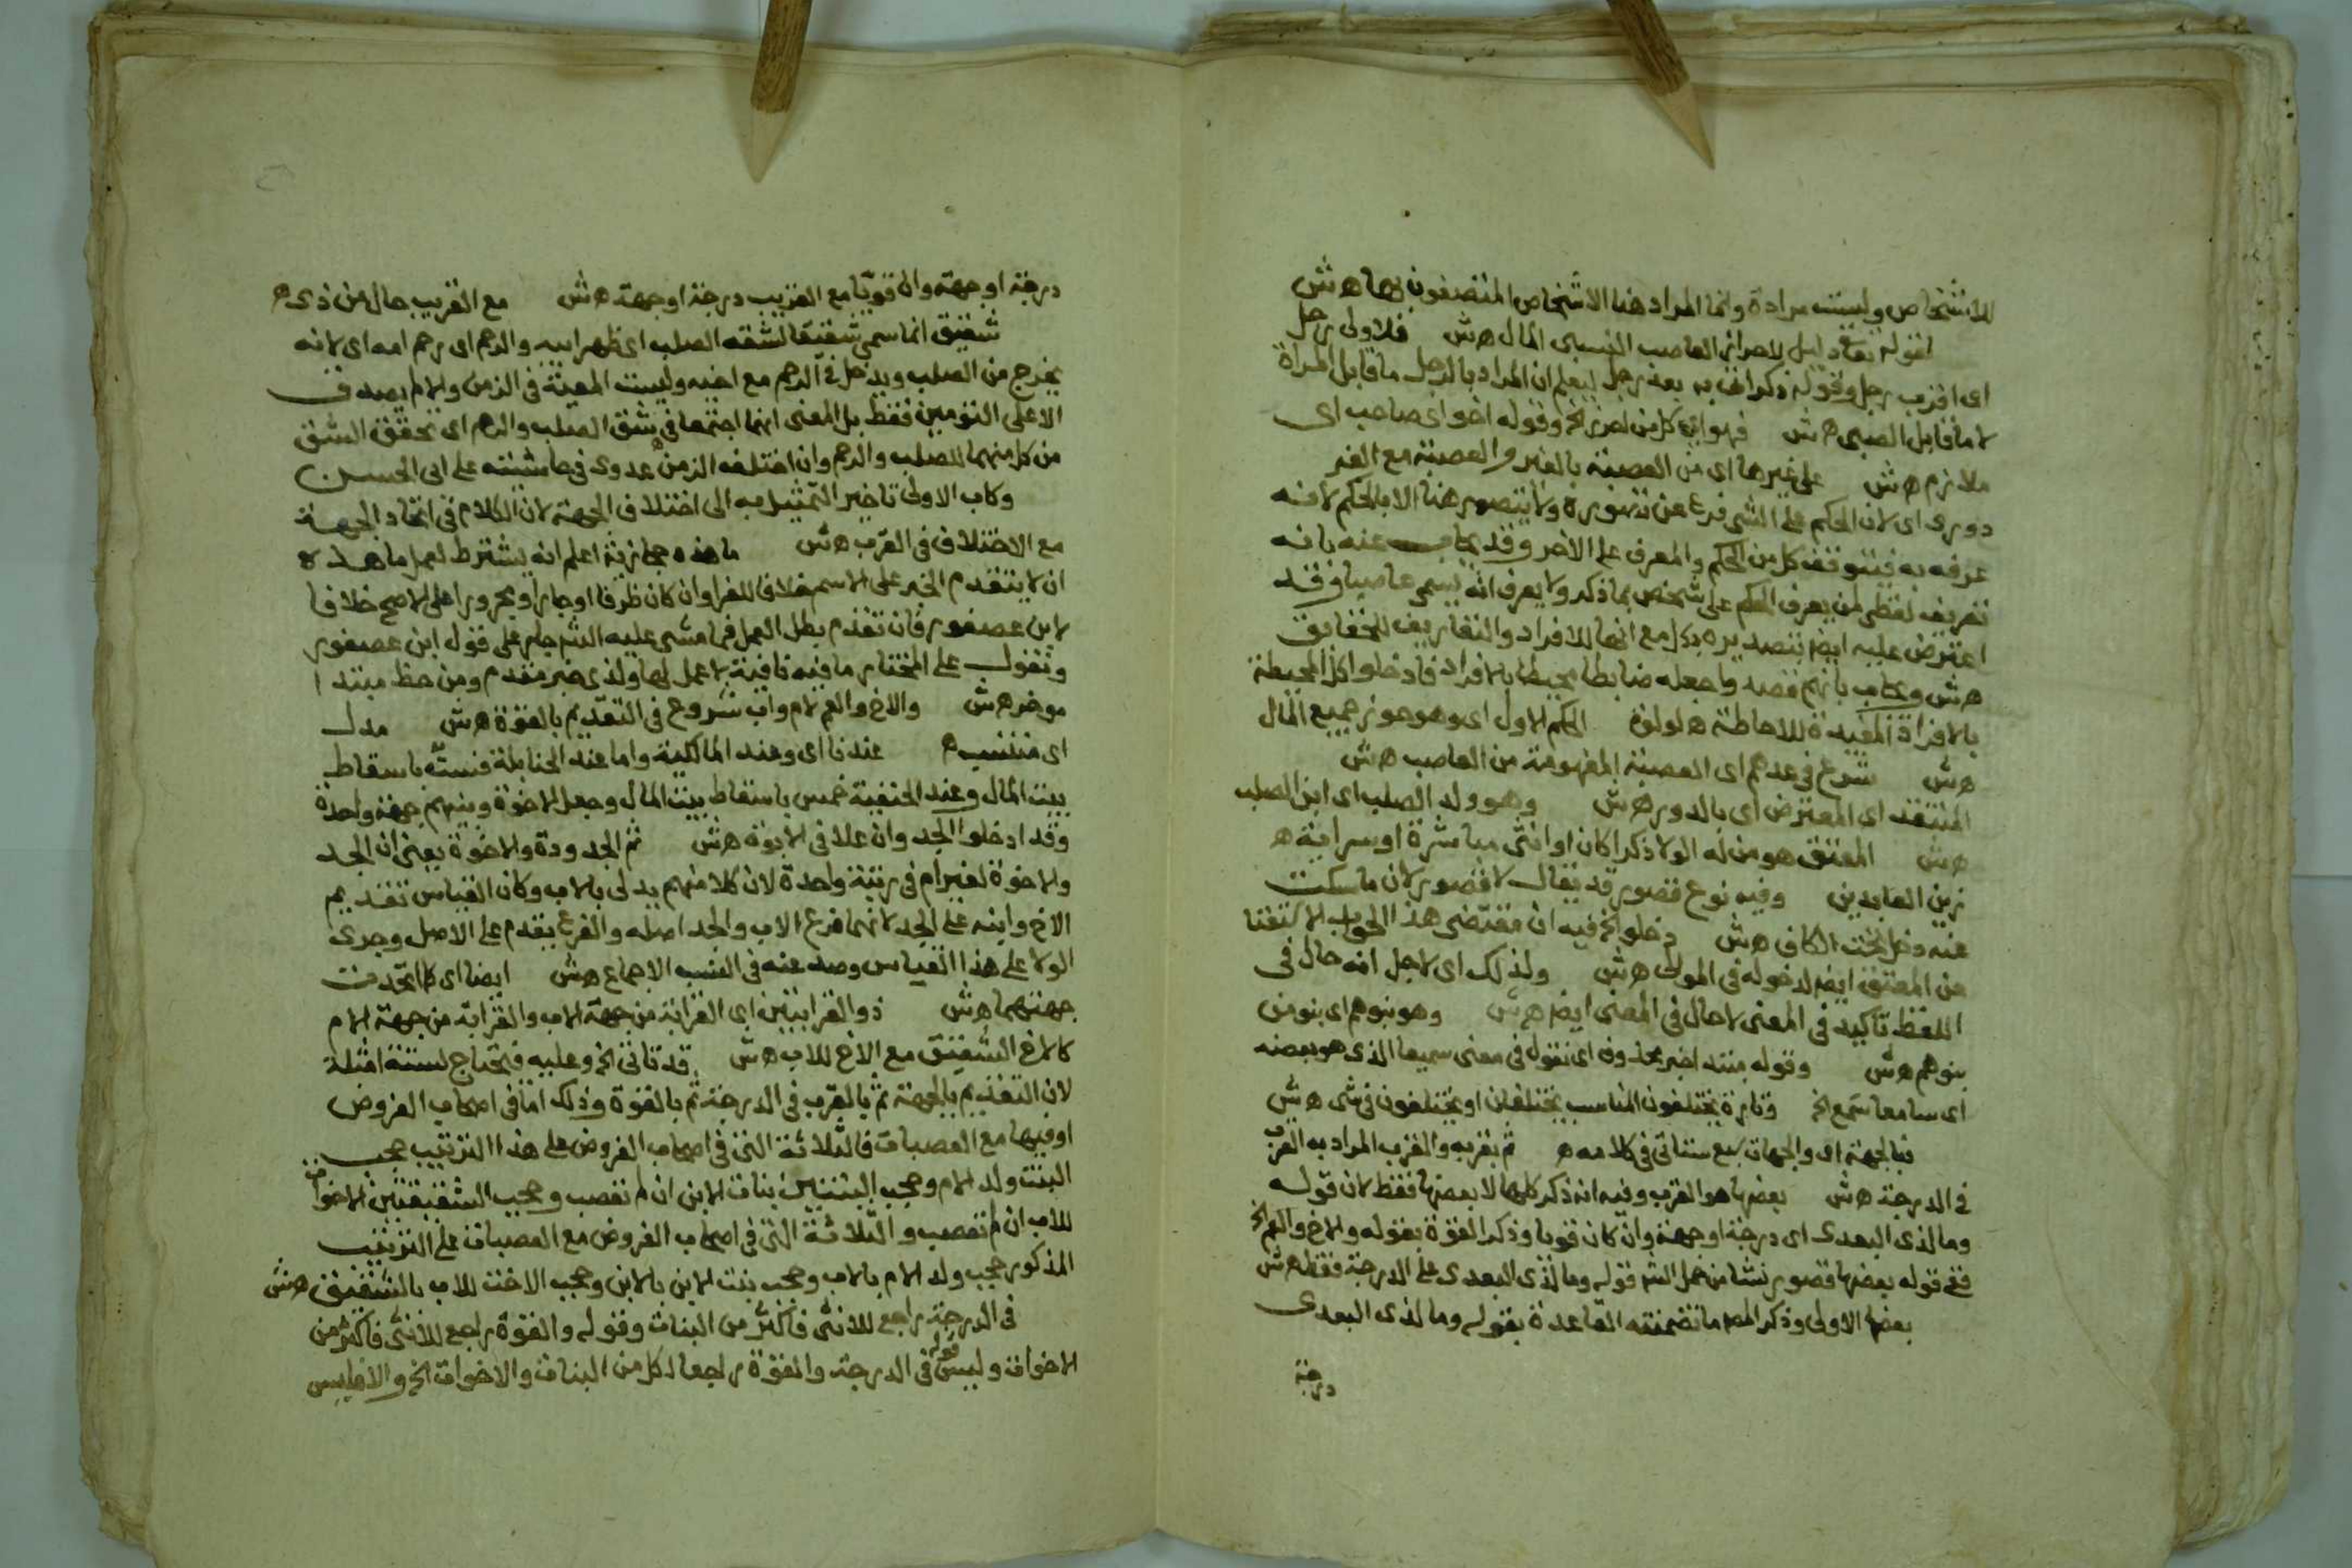 للاشخاص وليست مرادة وانما المراد هنا الاشخاص المتصفون بها هش
لقوله تعالى دليل لاحراز العاصب النسبى المال هش فلاولى رجل
اى اقرب رجل وقوله ذكر اتى به بعد رجل ليعلم ان المراد بالرجل ما قابل المراة
لا ما قابل الصبى هش فهو اى كل من احرز الخ وقوله اخو اى صاحب اى
ملازم هش على غيرها اى من العصبة بالغير والعصبة مع الغير
دورى اى لان الحكم على الشى فرع عن تصوره ولا يتصور هنا الا بالحكم لانه
عرفه به فيتوقف كل من الحكم والمعرف على الاخر وقد يجاب عنه بانه
تعريف لفظى لمن يعرف الحكم على شخص بما ذكر ولا يعرف انه يسمى عاصبا وقد
اعترض عليه ايض بتصديره بكل مع انها للافراد والتعاريف للحقايق
هش ويجاب بانهم قصدوا جعله ضابطا محيطا بالافراد فادخلوا كل المحيطة
بالافراد المفيدة للاحاطة ه لولوة الحكم الاول اى وهو حوز جميع المال
هش شرع فى عدهم اى العصبة المفهومة من العاصب هش
المنتقد اى المعترض اى بالدور هش وهو ولد الصلب اى ابن الصلب
هش المعتق هو من له الولا ذكرا كان او انثى مباشرة او سراية ه
زين العابدين وفيه نوع قصور قد يقال لا قصور لان ما سكت
عنه دخل تحت الكاف هش دخلوا الخ فيه ان مقتضى هذا الجواب الاكتفا
عن المعتق ايض لدخوله فى المولى هش ولذلك اى لاجل انه حال فى
اللفظ تأكيد فى المعنى لا حال فى المعنى ايض هش وهو بنوهم اى بنو من
بنوهم هش وقوله مبتد اخبر محذوف اى نقول فى معنى سميعا الذى هو بعضه
اى سامعا سمع الخ وتارة يختلفون المناسب يختلفان او يختلفون فى شى هش
فبالجهة اى والجهات سبع ستاتى فى كلامه ه ثم بقربه والقرب المراد به القرب
فى الدرجة هش بعضها هو القرب وفيه انه ذكر كلها لا بعضها فقط لان قوله
وما لذى البعدى اى درجة او جهة وان كان قويا وذكر القوة بقوله والاخ والعم الخ
ففى قوله بعضها قصور نشا من حمل الش قوله وما لذى البعدى على الدرجة فقط هش
بعضها الاولى وذكر المص ما تضمنته القاعدة بقوله وما لذى البعدى
درجة
درجة او جهة والا قويا مع القريب درجة او جهة هش مع القريب حال من ذى ه
شقيق انما سمى شقيقا لشقه الصلب اى ظهر ابيه والرحم اى رحم امه اى لانه
يخرج من الصلب ويدخل فى الرحم مع اخيه وليست المعية فى الزمن والا لم يصدق
الا على التومين فقط بل المعنى انهما اجتمعا فى شق الصلب والرحم اى تحقق الشق
من كل منهما للصلب والرحم وان اختلف الزمن عدوى فى حاشيته على ابى الحسن
وكاب الاولى تاخير التمثيل به الى اختلاف الجهة لان الكلام فى اتحاد الجهة
مع الاختلاف فى القرب هش ما هذه حجازية اعلم انه يشترط لعمل ما هذه
ان لا يتقدم الخبر على الاسم خلافا للفرا وان كان ظرفا او جارا ومجرورا على الاصح خلافا
لابن عصفور فان تقدم بطل العمل فما مشى عليه الش جار على قول ابن عصفور
وتقول على المختار ما فيه نافية لا عمل لها ولذى خبر مقدم ومن حظ مبتدا
موخر هش والاخ والعم لام واب شروع فى التقديم بالقوة هش مدل
اى منتسب ه عندنا اى وعند المالكية واما عند الحنابلة فستة باسقاط
بيت المال وعند الحنفية خمس باسقاط بيت المال وجعل الاخوة وبنيهم جهة واحدة
وقد ادخلوا الجد وان علا فى الابوة هش ثم الجدودة والاخوة يعنى ان الجد
والاخوة لغير ام فى رتبة واحدة لان كلا منهم يدلى بالاب وكان القياس تقديم
الاخ وابنه على الجد لانهما فرع الاب والجد اصله والفرع يقدم على الاصل وجرى
الولا على هذا القياس وصد عنه فى النسب الاجماع هش ايضا اى كما اتحدت
جهتهما هش ذو القرابتين اى القرابة من جهة الاب والقرابة من جهة الام
كالاخ الشقيق مع الاخ للاب هش قد تاتى الخ وعليه فيحتاج لستة امثلة
لان التقديم بالجهة ثم بالقرب فى الدرجة ثم بالقوة وذلك اما فى اصحاب الفروض
او فيها مع العصبات فالثلاثة التى فى اصحاب الفروض على هذا الترتيب حجب
البنت ولد الام وحجب البنتين بنات الابن ان لم تعصب وحجب الشقيقتين الاخوات
للاب ان لم تعصب والثلاثة التى فى اصحاب الفروض مع العصبات على الترتيب
المذكور حجب ولد الام بالاب وحجب بنت الابن بالابن وحجب الاخت للاب بالشقيق هش
فى الدرجة راجع للانثى فاكثر من البنات وقوله والقوة راجع للانثى فاكثر من
الاخوات وليس قوله فى الدرجة والقوة راجعا لكل من البنات والاخوات الخ والا فليس